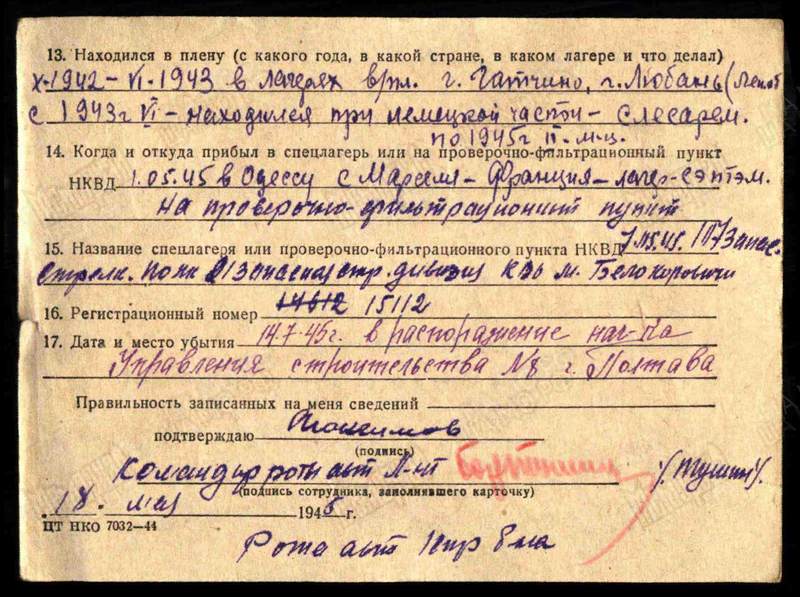 13. Находился в плену (с какого года, в какой стране, в каком лагере и что делал)
X-1942 – VI-1943 в лагерях г. Гатчино, г. Любань
с 1943г VI – находился при немецкой части – слесарем.
по 1945г м-ц.
14. Когда и откуда прибыл в спецлагерь или на проверочно-фильтрационный пункт
НКВД 1.05.45 в Одессу с Марселя – Франция – лагер-
на проверочно-фильтрационит пункт
15. Название спецлагеря или проверочно-фильтрационного пункта НКВД
Стрелк. полк стр. дивизия м. Белокоровичи
16. Регистрационный номер 14612 15112
17. Дата и место убытия 14.7.45г. в распоражение нач-ка
Управления строительства №8 г. Полтава
Правильность записанных на меня сведений
подтверждаю
(подпись)
Командир роты Л-нт
(подпись сотрудника, заполнявшего карточку)
18. мая 1945 г.
ЦТ НКО 7032—44
Рота